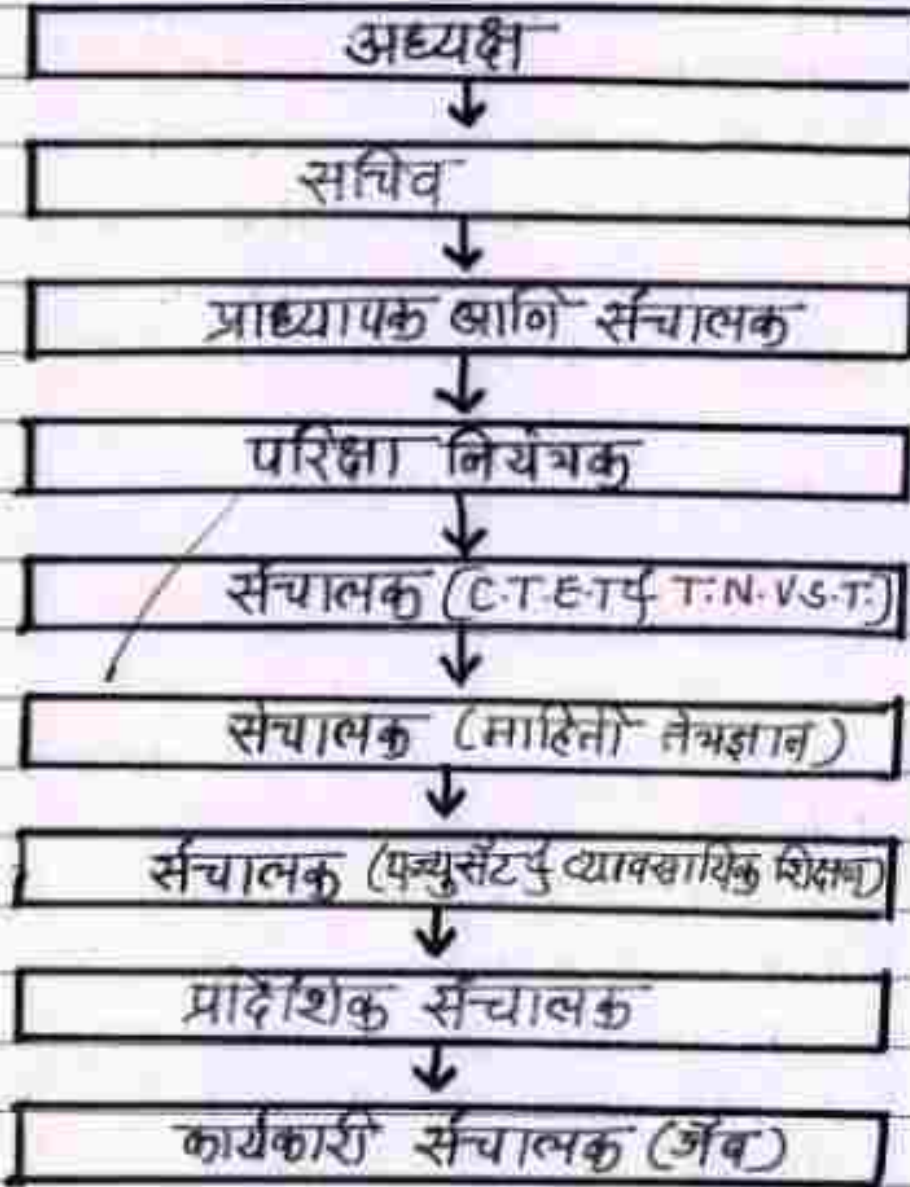 अध्यक्ष
सचिव
प्राध्यापक आणि संचालक
परिक्षा नियंत्रक
संचालक (C.T.E.T & T.N.V.S.T.)
संचालक (माहिती तंत्रज्ञान)
संचालक (एज्युसॅट & व्यावसायिक शिक्षण)
प्रादेशिक संचालक
कार्यकारी संचालक